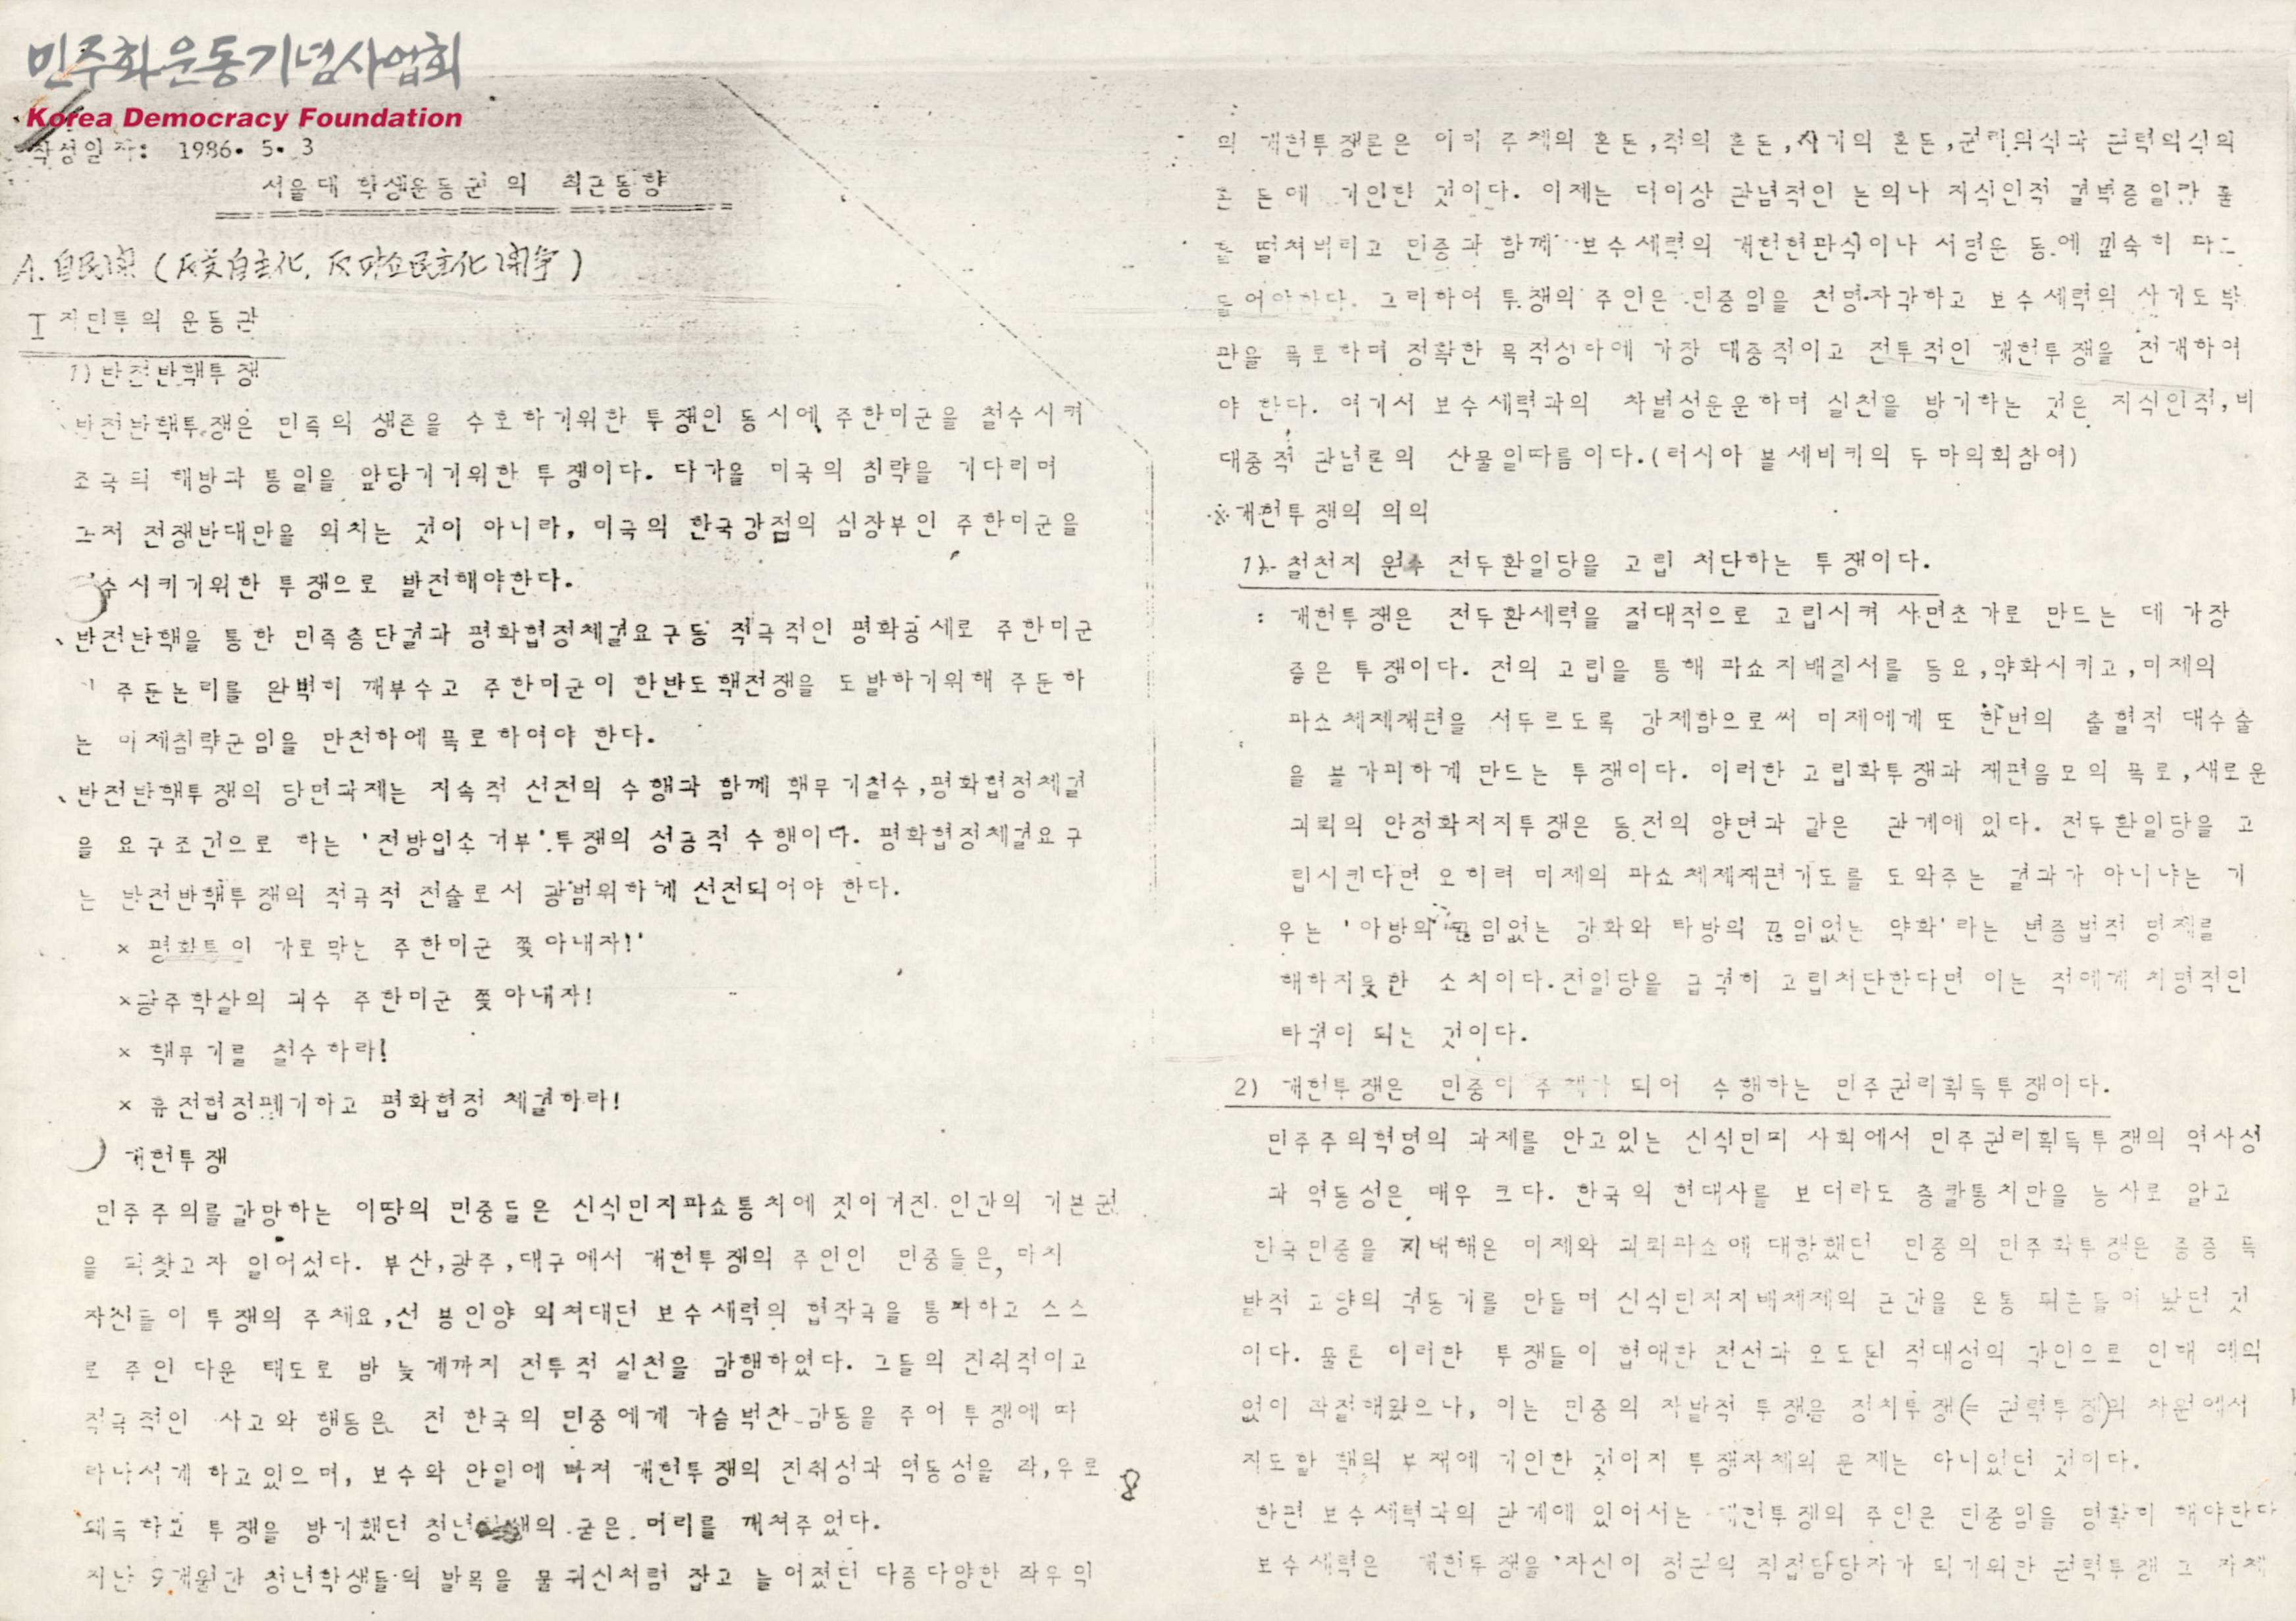 민주화운동기념사업회
Korea Democracy Foundation
작성일자: 1986. 5. 3
서울대 학생운동권 의 최근동향
A. 自民鬪 (反美自主化, 反파쇼民主化 鬪爭)
I 자민투의 운동관
1) 반전반핵투쟁
반전반핵투쟁은 민족의 생존을 수호하기위한 투쟁인 동시에 주한미군을 철수시켜
조국의 해방과 통일을 앞당기기위한 투쟁이다. 다가올 미국의 침략을 기다리며
그저 전쟁반대만을 외치는 것이 아니라, 미국의 한국강점의 심장부인 주한미군을
수시키기위한 투쟁으로 발전해야한다.
반전반핵을 통한 민족총단결과 평화협정체결요구등 적극적인 평화공세로 주한미군
주둔논리를 완벽히 깨부수고 주한미군이 한반도핵전쟁을 도발하기위해 주둔하
는 미제침략군임을 만천하에 폭로하여야 한다.
반전반핵투쟁의 당면과제는 지속적 선전의 수행과 함께 핵무기철수,평화협정체결
을 요구조건으로 하는 '전방입소거부' 투쟁의 성공적 수행이다. 평화협정체결요구
는 반전반핵투쟁의 적극적 전술로서 광범위하게 선전되어야 한다.
× 평화통일 가로막는 주한미군 쫓아내자!'
×광주학살의 괴수 주한미군 쫓아내자!
× 핵무기를 철수하라!
× 휴전협정폐기하고 평화협정 체결하라!
개헌투쟁
민주주의를갈망하는 이땅의 민중들은 신식민지파쇼통치에 짓이겨진 인간의 기본권
을 되찾고자 일어섰다. 부산,광주,대구에서 개헌투쟁의 주인인 민중들은, 마치
자신들이 투쟁의 주체요,선봉인양 외쳐대던 보수세력의 협작극을 통파하고 스스
로 주인 다운 태도로 밤 늦게까지 전투적 실천을 감행하였다. 그들의 진취적이고
적극적인 사고와 행동은 전 한국의 민중에게 가슴벅찬 감동을 주어 투쟁에 따
라나서게 하고있으며, 보수와 안일에 빠져 개헌투쟁의 진취성과 역동성을 좌,우로
왜곡하고 투쟁을 방기했던 청년학생의 굳은 머리를 깨쳐주었다.
지난 9개월간 청년학생들의 발목을 물귀신처럼 잡고 늘어졌던 다종다양한 좌우익
8
의 개헌투쟁론은 이미 주체의 혼돈,적의 혼돈,시기의 혼돈,권리의식과 권력의식의
혼돈에 기인한 것이다. 이제는 더이상 관념적인 논의나 지식인적 결벽증일랑 훌
훌 떨쳐버리고 민중과 함께 보수세력의 개헌현판식이나 서명운동에 깊숙히 파고
들어야하다. 그리하여 투쟁의 주인은 민중임을 천명·자각하고 보수세력의 사기도박
판을 폭로하며 정확한 목적성하에 가장 대중적이고 전투적인 개헌투쟁을 전개하여
야 한다. 여기서 보수세력과의 차별성운운하며 실천을 방기하는 것은 지식인적,비
대중적 관념론의 산물일따름이다.(러시아 볼세비키의 두마의회참여)
※개헌투쟁의 의의
1) 철천지 원수 전두환일당을 고립 처단하는 투쟁이다.
: 개헌투쟁은 전두환세력을 절대적으로 고립시켜 사면초가로 만드는 데 가장
좋은 투쟁이다. 전의 고립을 통해 파쇼지배질서를 동요,약화시키고,미제의
파쇼체제재편을 서두르도록 강제함으로써 미제에게 또 한번의 출혈적 대수술
을 불가피하게 만드는 투쟁이다. 이러한 고립화투쟁과 재편음모의 폭로,새로운
괴뢰의 안정화저지투쟁은 동전의 양면과 같은 관계에 있다. 전두환일당을 고
립시킨다면 오히려 미제의 파쇼체제재편기도를 도와주는 결과가 아니냐는 기
우는 '아방의 끊임없는 강화와 타방의 끊임없는 약화'라는 변증법적 명제를
해하지못한 소치이다.전일당을 급격히 고립처단한다면 이는 적에게 치명적인
타격이 되는 것이다.
2) 개헌투쟁은 민중이 주체가 되어 수행하는 민주권리획득투쟁이다.
민주주의혁명의 과제를 안고있는 신식민지 사회에서 민주권리획득투쟁의 역사성
과 역동성은 매우 크다. 한국의 현대사를 보더라도 총칼통치만을 능사로 알고
한국민중을 지배해온 미제와 괴뢰파쇼에 대항했던 민중의 민주화투쟁은 종종 폭
발적 고양의 격동기를 만들며 신식민지지배체제의 근간을 온통 뒤흔들어 놨던 것
이다. 물론 이러한 투쟁들이 협애한 전선과 오도된 적대성의 각인으로 인해 예외
없이 좌절해왔으나, 이는 민중의 자발적 투쟁을 정치투쟁(= 권력투쟁)의 차원에서
지도할 핵의 부재에 기인한 것이지 투쟁자체의 문제는 아니었던 것이다.
한편 보수세력과의 관계에 있어서는 개헌투쟁의 주인은 민중임을 명확히 해야한다
보수세력은 개헌투쟁을 '자신이 정권의 직접담당자가 되기위한 권력투쟁 그 자체